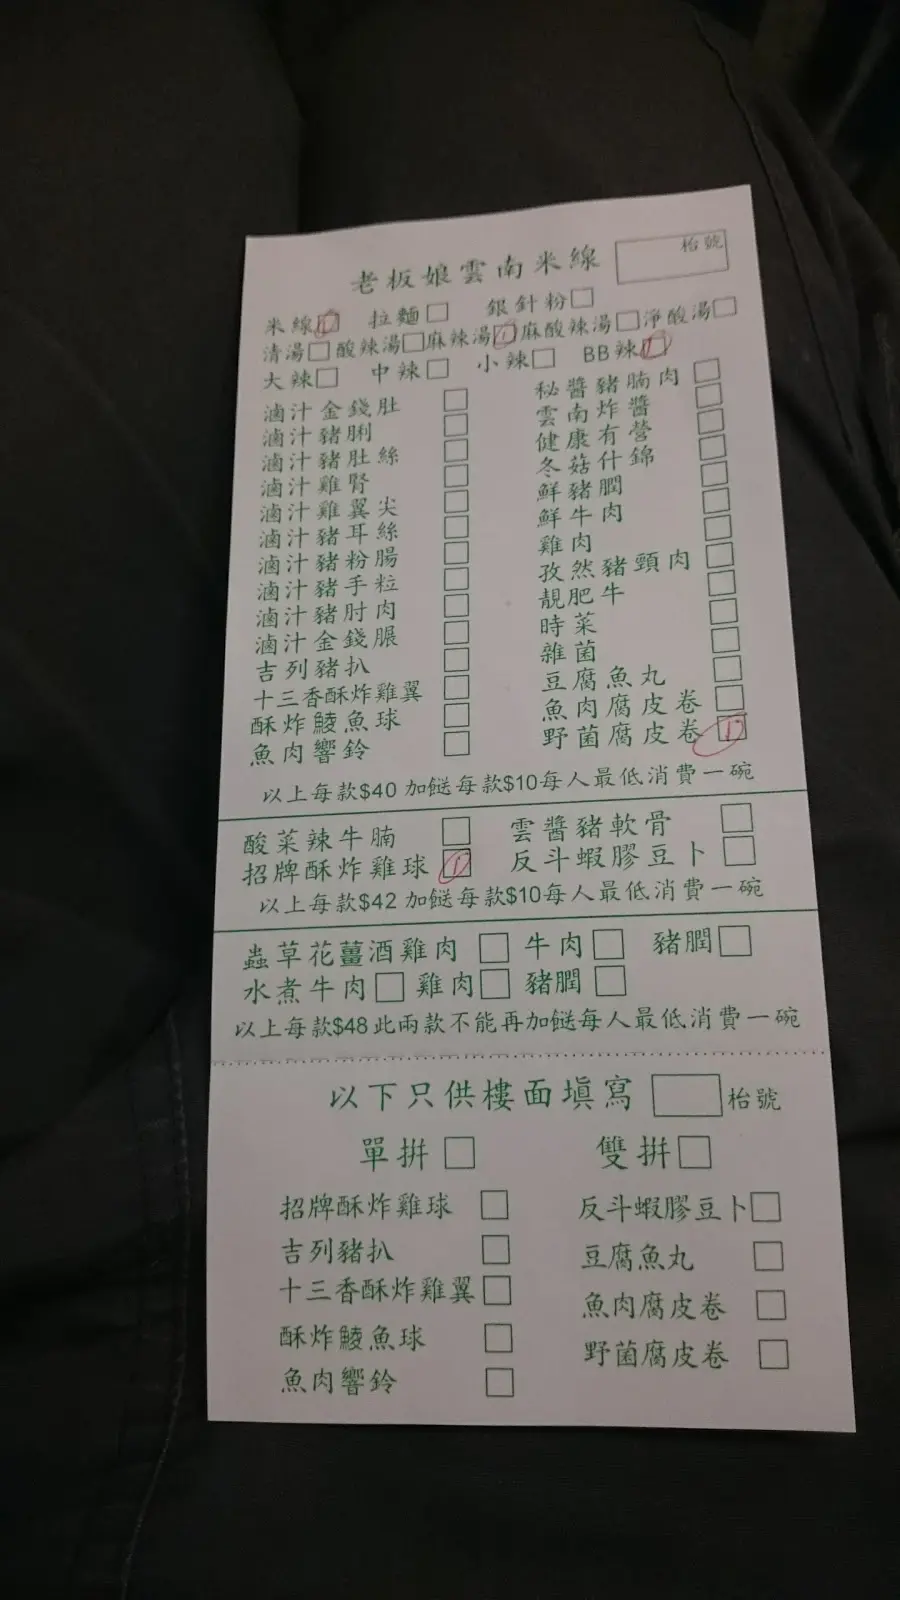 老板娘雲南米線 枱號
米線 拉麵 銀針粉
清湯 酸辣湯 麻辣湯 麻酸辣湯 淨酸湯
大辣 中辣 小辣 BB辣
滷汁金錢肚 秘醬豬腩肉
滷汁豬脷 雲南炸醬
滷汁豬肚絲 健康有營
滷汁雞腎 冬菇什錦
滷汁雞翼尖 鮮豬膶
滷汁豬耳絲 鮮牛肉
滷汁豬粉腸 雞肉
滷汁豬手粒 孜然豬頸肉
滷汁豬肘肉 靚肥牛
滷汁金錢𦟌 時菜
吉列豬扒 雜菌
十三香酥炸雞翼 豆腐魚丸
酥炸鯪魚球 魚肉腐皮卷
魚肉響鈴 野菌腐皮卷
以上每款$40加餸每款$10每人最低消費一碗
酸菜辣牛腩 雲醬豬軟骨
招牌酥炸雞球 反斗蝦膠豆卜
以上每款$42加餸每款$10每人最低消費一碗
蟲草花薑酒雞肉 牛肉 豬膶
水煮牛肉 雞肉 豬膶
以上每款$48此兩款不能再加餸每人最低消費一碗
以下只供樓面填寫 枱號
單拼 雙拼
招牌酥炸雞球 反斗蝦膠豆卜
吉列豬扒 豆腐魚丸
十三香酥炸雞翼 魚肉腐皮卷
酥炸鯪魚球 野菌腐皮卷
魚肉響鈴